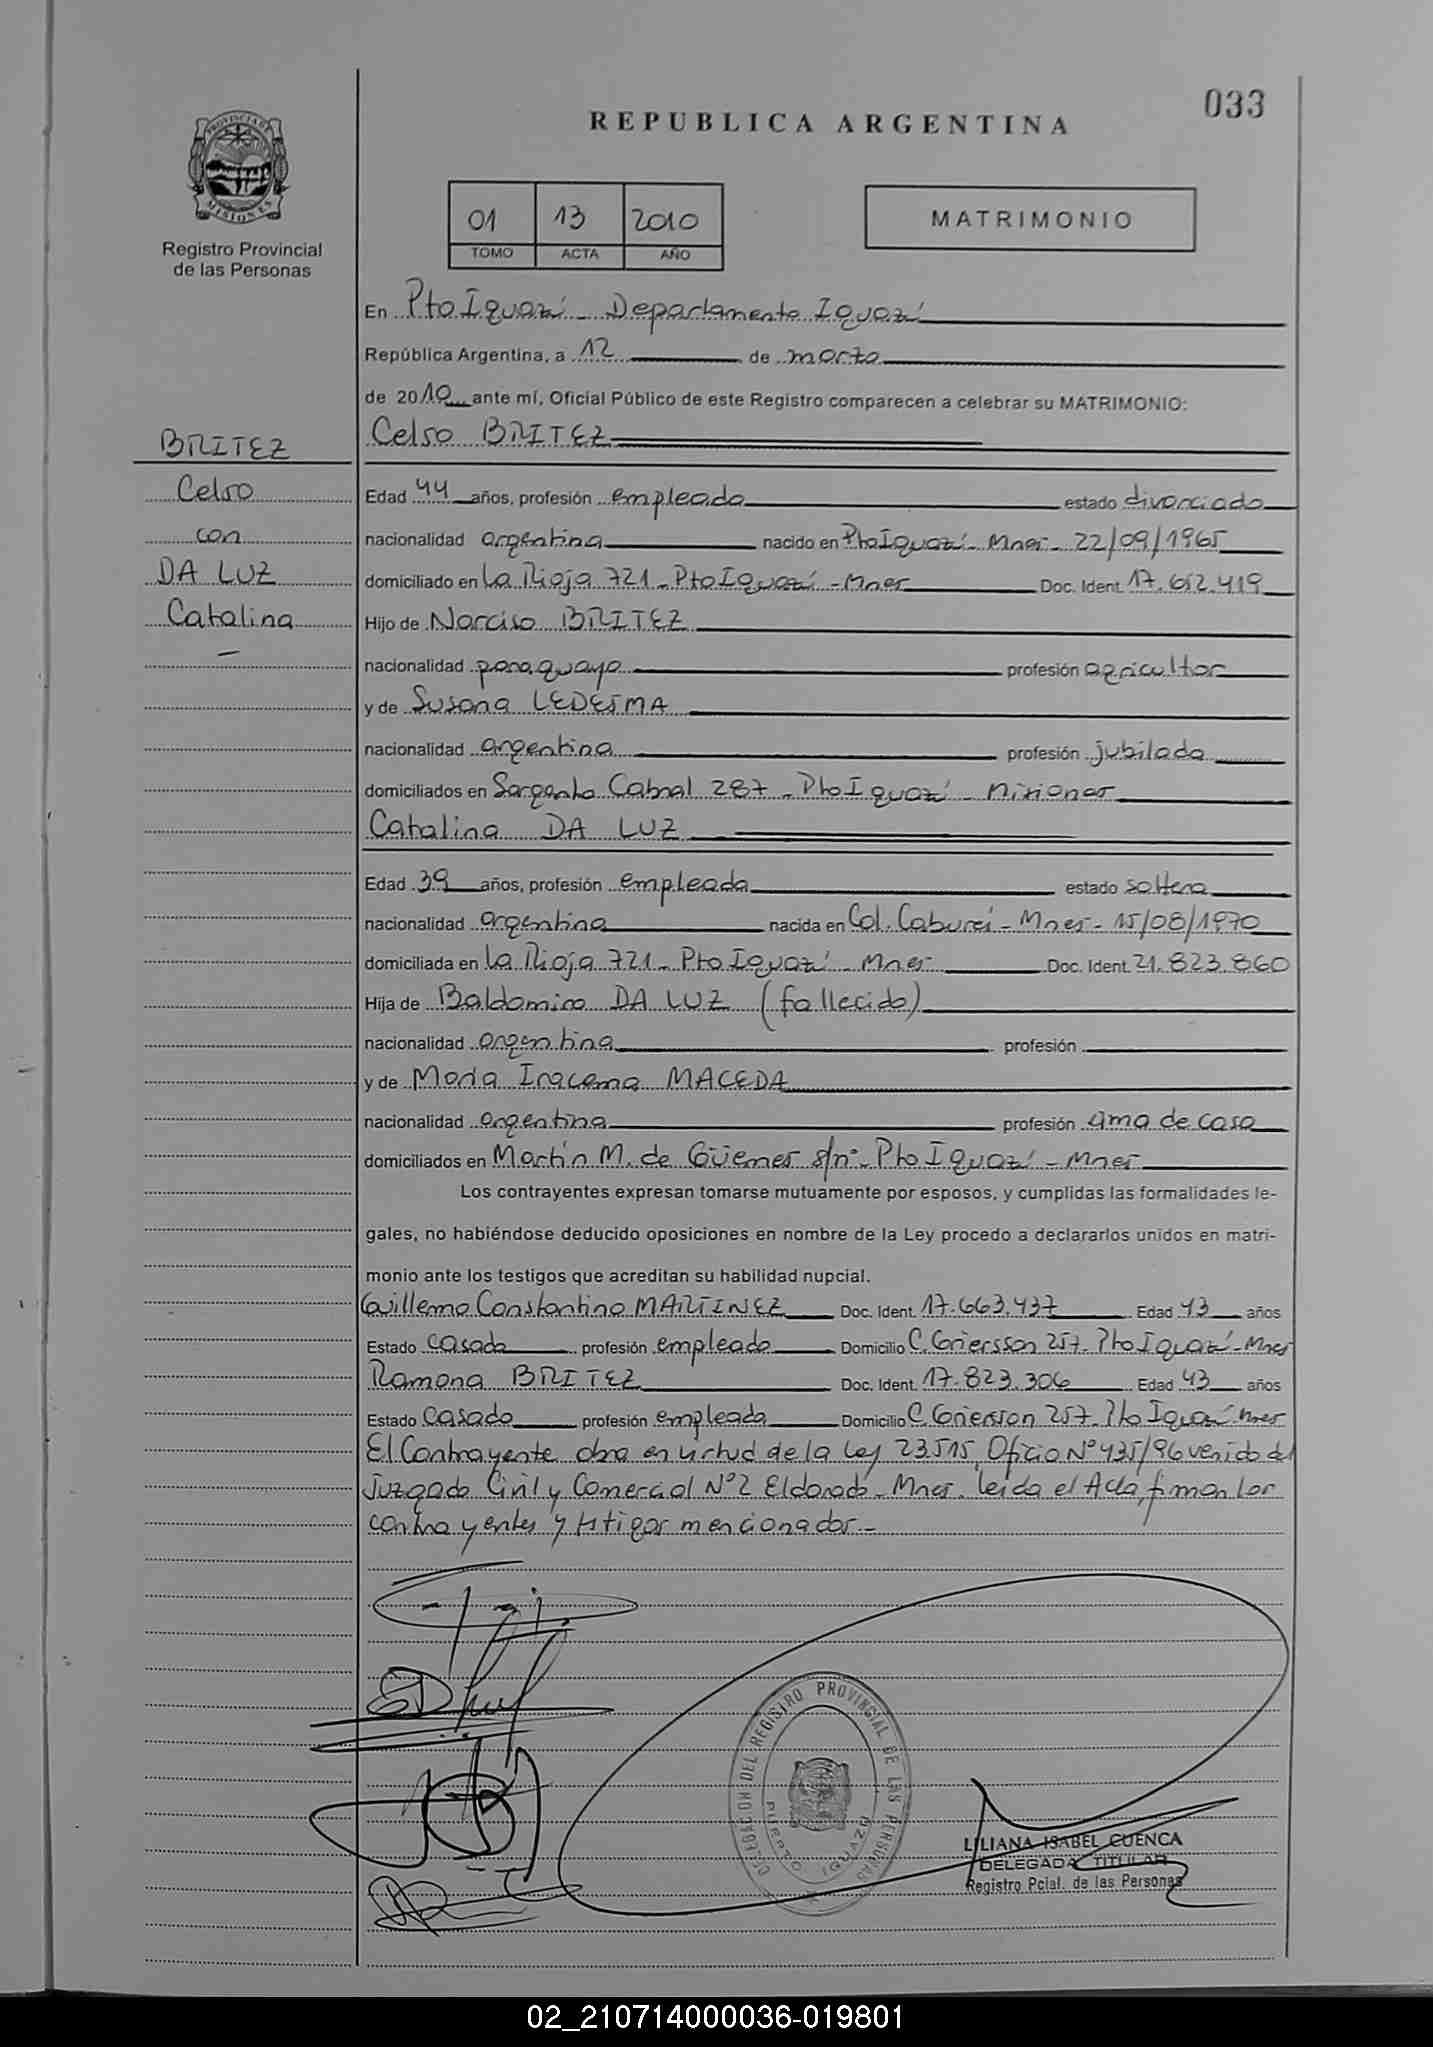 033
REPUBLICA ARGENTINA
PROVINCIA DE
MISIONES
Registro Provincial
de las Personas
01 13 2010
TOMO ACTA AÑO
MATRIMONIO
En Pto Iguazú - Departamento Iguazú
República Argentina, a 12 de marzo
de 2010 ante mí, Oficial Público de este Registro comparecen a celebrar su MATRIMONIO:
BRITEZ
Celso
con
DA LUZ
Catalina
Celso BRITEZ
Edad 44 años, profesión empleado estado divorciado
nacionalidad argentina nacido en Pto Iguazú - Mnes - 22/09/1965
domiciliado en La Rioja 721 - Pto Iguazú - Mnes Doc. Ident. 17.652.419
Hijo de Narciso BRITEZ
nacionalidad paraguaya profesión agricultor
y de Susana LEDESMA
nacionalidad argentina profesión jubilada
domiciliados en Sargento Cabral 287 - Pto Iguazú - Misiones
Catalina DA LUZ
Edad 39 años, profesión empleada estado soltera
nacionalidad argentina nacida en Col. Cabureí - Mnes - 15/08/1970
domiciliada en La Rioja 721 - Pto Iguazú - Mnes Doc. Ident. 21.823.860
Hija de Baldomiro DA LUZ (fallecido)
nacionalidad argentina profesión
y de María Iracema MACEDA
nacionalidad argentina profesión ama de casa
domiciliados en Martín M. de Güemes s/nº - Pto Iguazú - Mnes
Los contrayentes expresan tomarse mutuamente por esposos, y cumplidas las formalidades le-
gales, no habiéndose deducido oposiciones en nombre de la Ley procedo a declararlos unidos en matri-
monio ante los testigos que acreditan su habilidad nupcial.
Guillermo Constantino MARTINEZ Doc. Ident. 17.663.437 Edad 43 años
Estado casado profesión empleado Domicilio C. Griersson 257 - Pto Iguazú - Mnes
Ramona BRITEZ Doc. Ident. 17.823.306 Edad 43 años
Estado casado profesión empleada Domicilio C. Grierson 257 - Pto Iguazú Mnes
El Contrayente obra en virtud de la Ley 23.515, Oficio Nº 435/96 venido del
Juzgado Civil y Comercial Nº 2 Eldorado - Mnes. Leída el Acta, firman los
contrayentes y testigos mencionados.-
DELEGACION DEL REGISTRO PROVINCIAL DE LAS PERSONAS
PUERTO IGUAZU
LILIANA ISABEL CUENCA
DELEGADA TITULAR
Registro Pcial. de las Personas
02_210714000036-019801